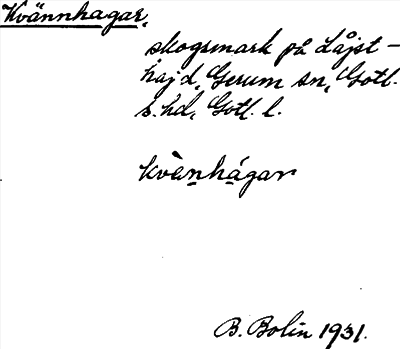 Kvännhagar,
skogsmark på Låjst-
hajd, Gerum sn, Gotl.
s. hd, Gotl. l.
kvànhágar
B. Bolin 1931.